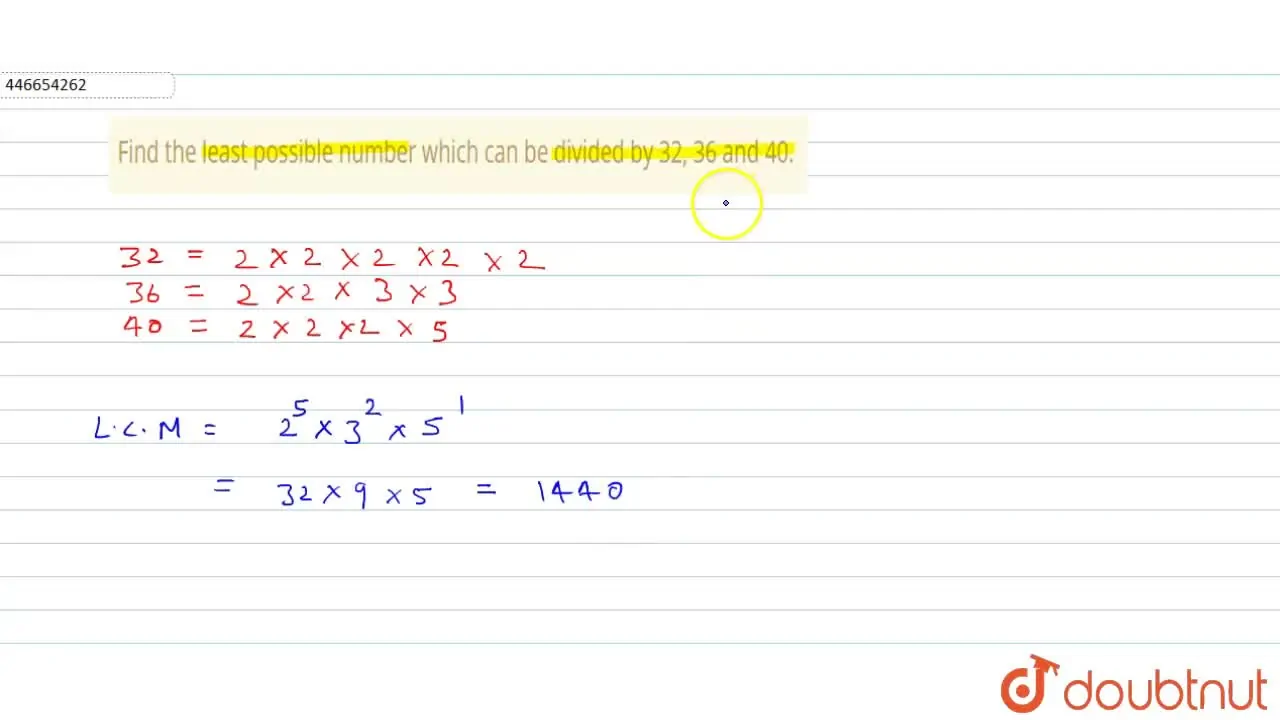 446654262
Find the least possible number which can be divided by 32, 36 and 40.
32 = 2 × 2 × 2 × 2 × 2
36 = 2 × 2 × 3 × 3
40 = 2 × 2 × 2 × 5
L.C.M = 2⁵ × 3² × 5¹
= 32 × 9 × 5 = 1440
doubtnut